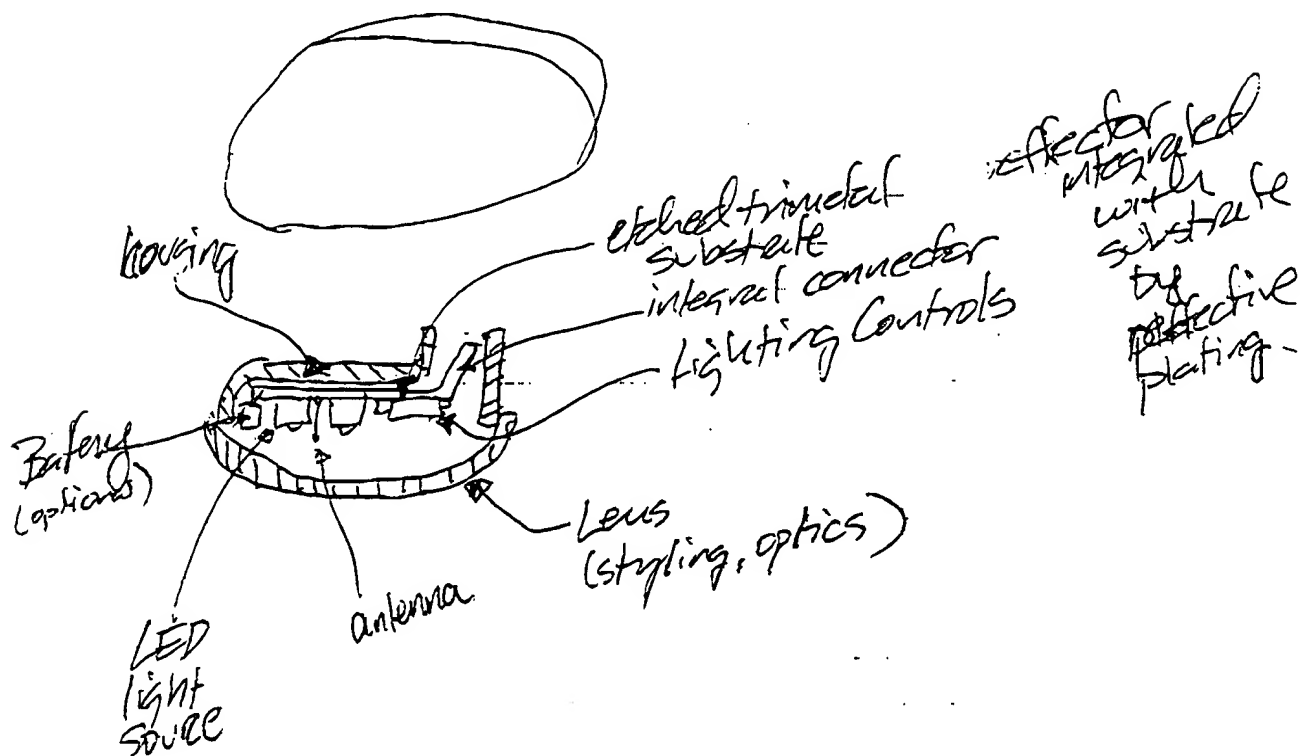 housing
etched trimetal
substrate
integral connector
Lighting Controls
reflector
integrated
with
substrate
by
reflective
plating.
Battery
(optional)
LED
light
source
antenna
Lens
(styling, optics)